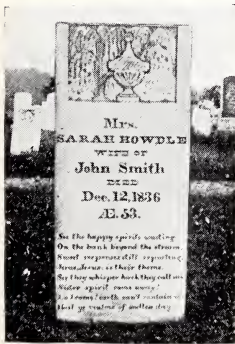 Mrs.
SARAH HOWDLE
WIFE OF
John Smith
DIED
Dec. 12, 1836
Æ. 53.
See the happy spirits waiting
On the bank beyond the stream
Sweet responses still repeating
Jesus, Jesus, is their theme.
See they whisper hark they call me
Sister spirit come away!
Lo I come! earth can't contain me
Hail ye realms of endless day